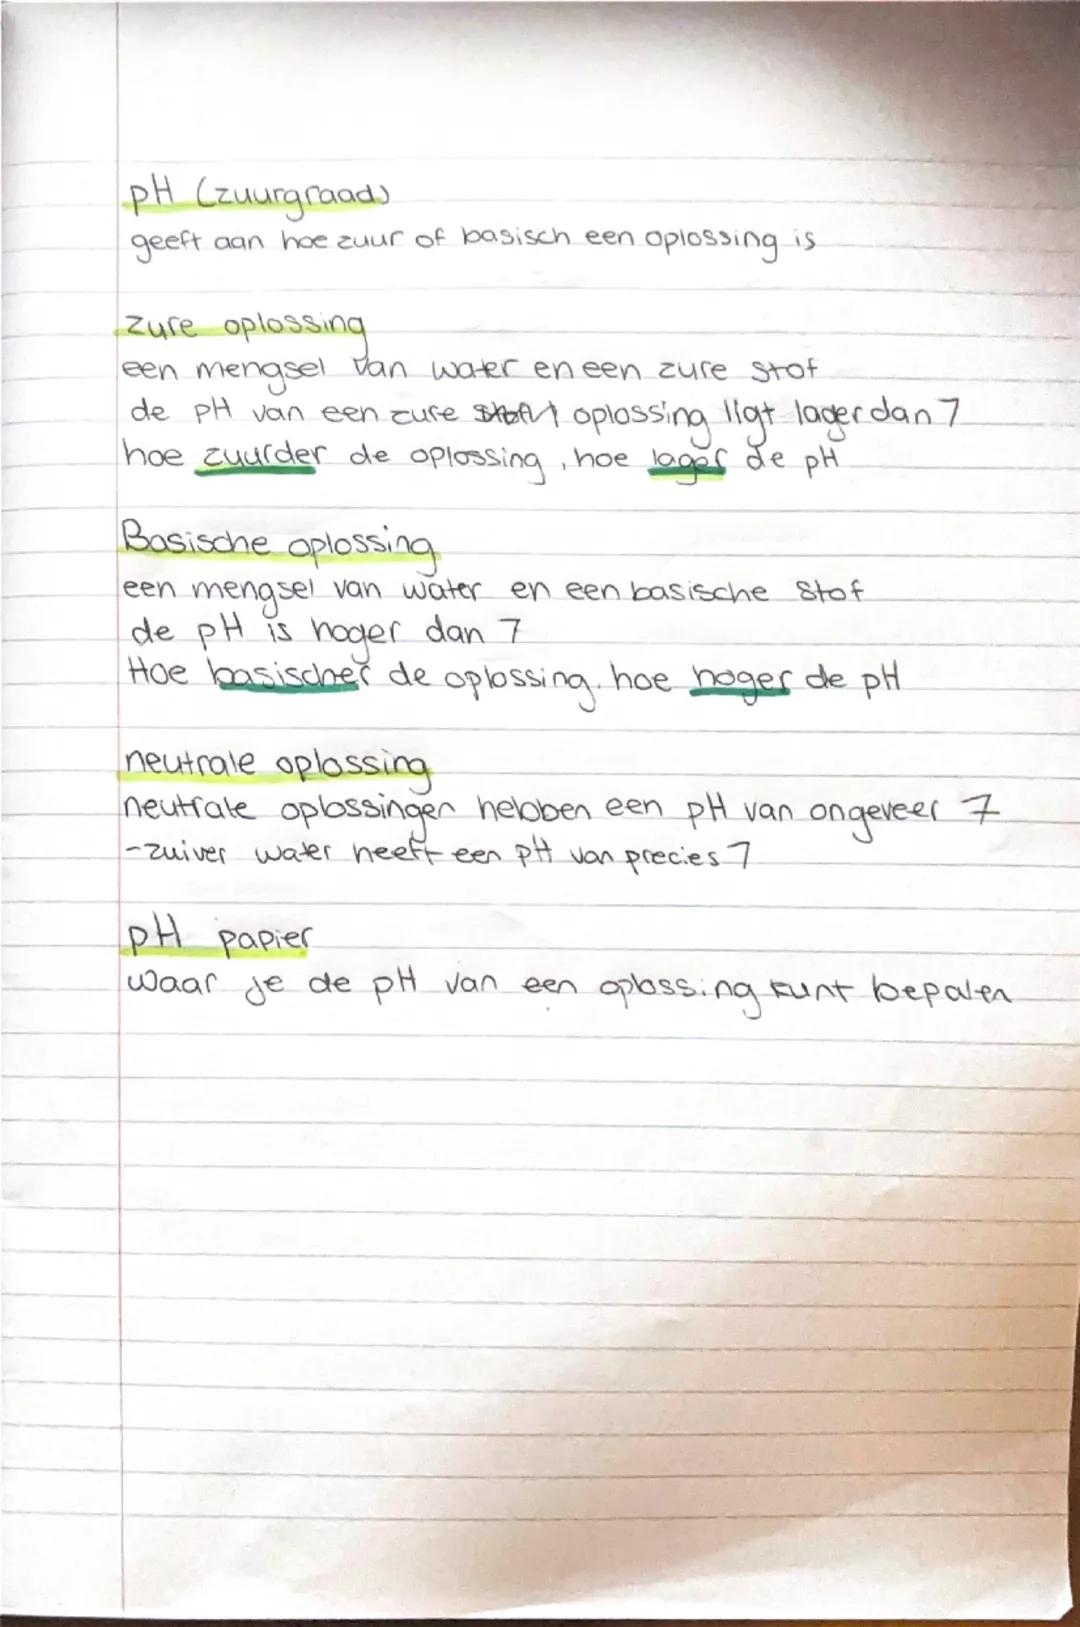 pH (zuurgraad)
geeft aan hoe zuur of basisch een oplossing is
zure oplossing
een mengsel van water en een zure stof
de pH van een zure oplossing ligt lager dan 7
hoe zuurder de oplossing, hoe lager de pH
Basische oplossing
een mengsel van water en een basische stof
de pH is hoger dan 7
Hoe basischer de oplossing. hoe hoger de pH
neutrale oplossing
neutrale oplossingen hebben een pH van ongeveer 7
-zuiver water heeft een pH van precies 7
pH papier
waar je de pH van een oplossing kunt bepalen